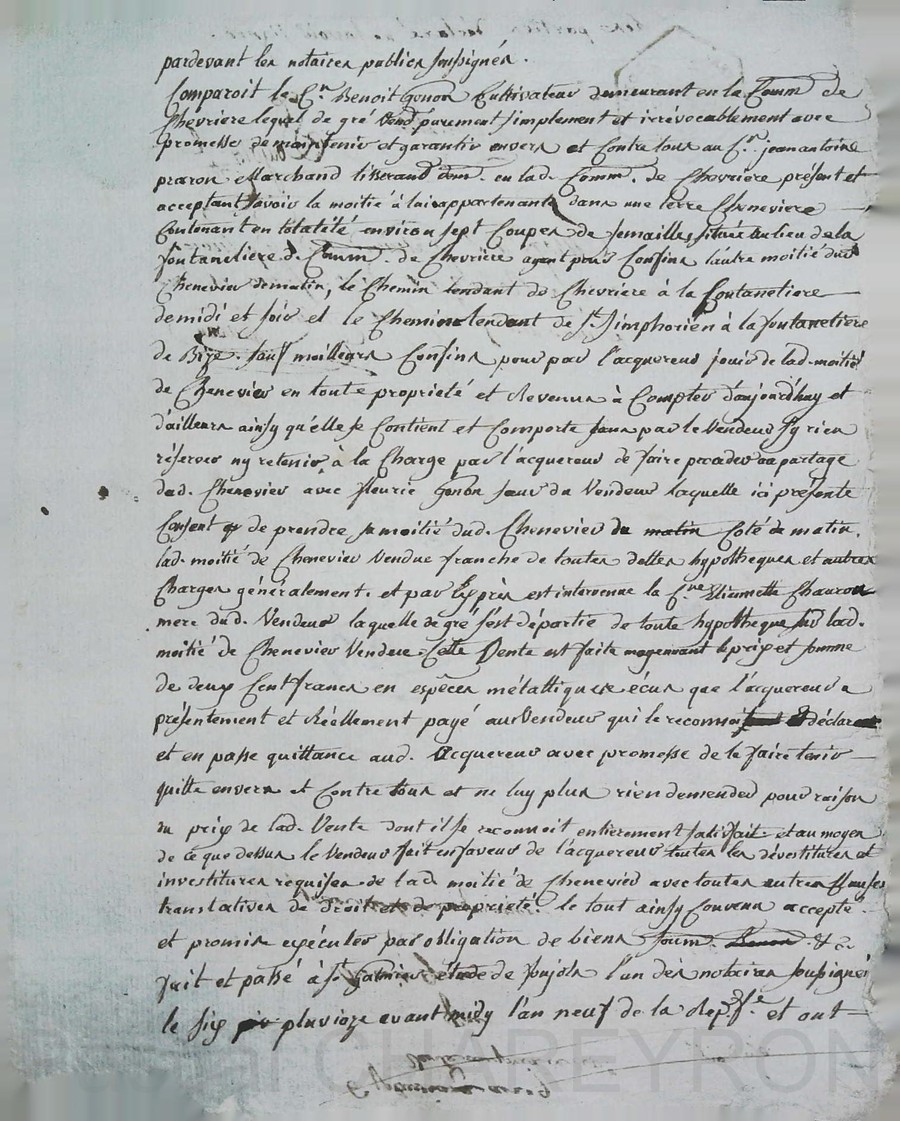 pardevant les notaires publics soussignés.
Comparoit le C.en Benoit Gonon Cultivateur demeurant en la Comm. de
Chevriere lequel de gré vend purement simplement et irrévocablement avec
promesse de maintenir et garantir envers et Contre tous au C.en jean antoine
praron Marchand tisserand dem. en lad. Comm. de Chevriere présent et
acceptant savoir la moitié à lui appartenante dans une terre Cheneviere
Contenant en totalité environ sept Coupes de semailles, située au lieu de la
fontaneliere d. Comm. de Chevriere ayant pour Confins l'autre moitié dud
Chenevier de matin, le Chemin tendant de Chevriere à la fontaneliere
de midi et soir et le Chemin tendant de St. simphorien à la fontaneliere
de Bize sauf meilleurs Confins pour par l'acquereur jouir de lad. moitié
de Chenevier en toute propriété et Revenus à Compter d'aujourd'huy et
d'ailleurs ainsy qu'elle se Contient et Comporte sans par le Vendeur s'y rien
réserver ny retenir, à la Charge par l'acquereur de faire proceder au partage
dud. Chenevier avec fleurie Gonon sœur du Vendeur laquelle ici présente
Consent de prendre sa moitié dud. Chenevier du matin Coté de matin.
lad. moitié de Chenevier Vendue franche de toutes dettes hypotheques et autres
Charges généralement. et par Exprès est intervenue la C.ne Chauron
mere dud. Vendeur laquelle de gré s'est départie de toute hypotheque sur lad.
moitié de Chenevier Vendue. Cette Vente est faite moyennant le prix et somme
de deux Cent francs en espèces métalliques ecus que l'acquereur a
présentement et Réellement payé au Vendeur qui le reconnoit déclare
et en passe quittance aud. Acquereur avec promesse de le faire tenir
quitte envers et Contre tous et ne luy plus rien demander pour raison
du prix de lad. Vente dont il se reconnoit entierement satisfait. et au moyen
de ce que dessus le Vendeur fait en faveur de l'acquereur toutes les dévestitures et
investitures requises de lad moitié de Chenevier avec toutes autres Clauses
translatives de droit et de propriété. le tout ainsy Convenu accepté
et promis exécuter par obligation de biens soum. Renon. & ca
fait et passé à St. Galmier étude de pujols l'un des notaires soussignés
le six pluvioze avant midy l'an neuf de la Rep. fse. et ont
CHAREYRON